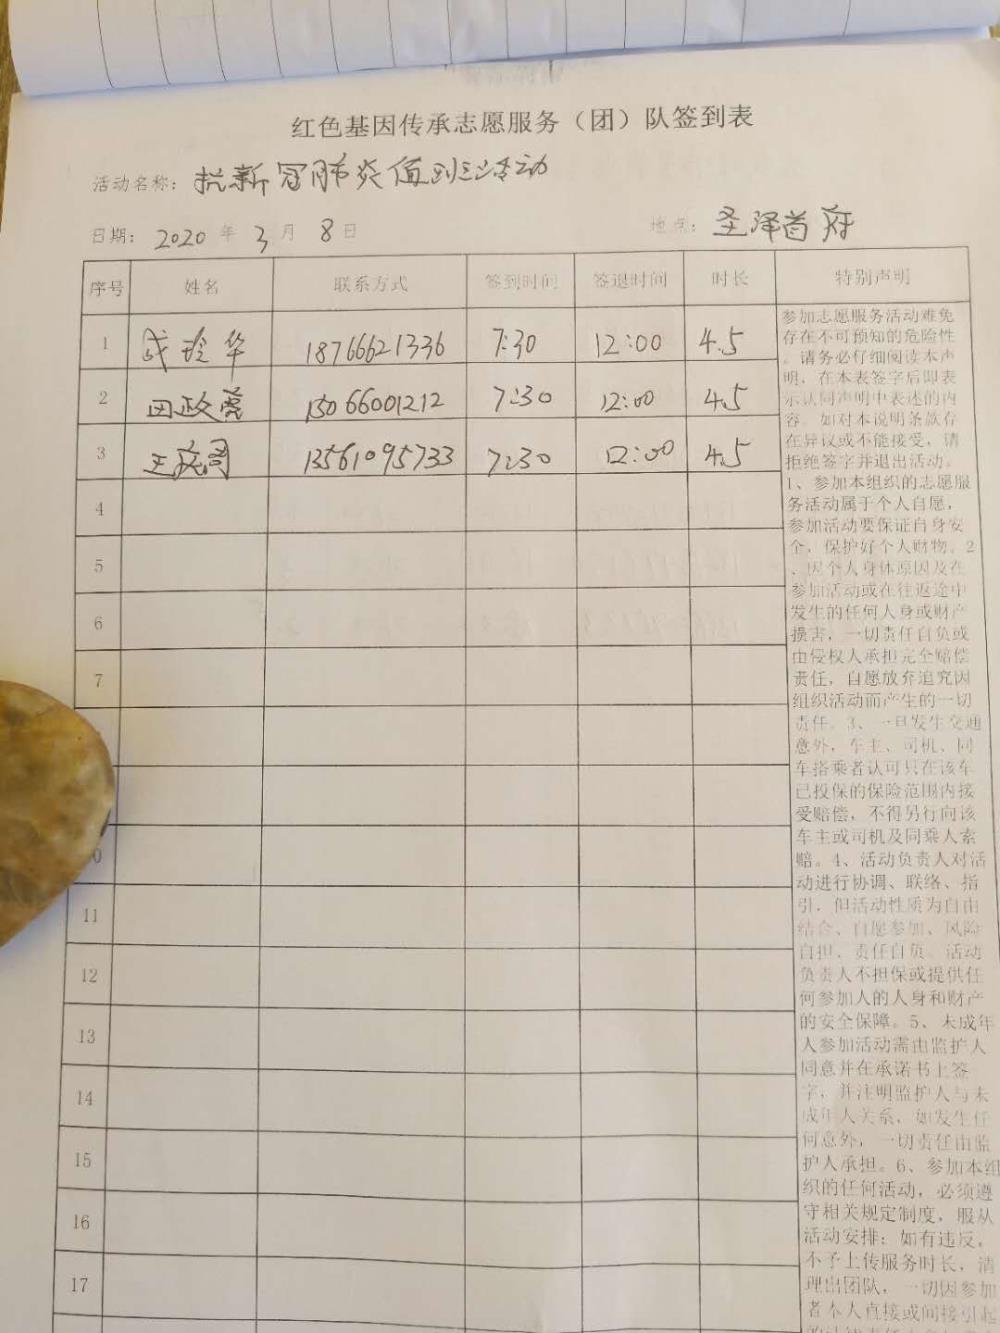 红色基因传承志愿服务（团）队签到表
活动名称：抗新冠肺炎值到活动
日期：2020年3月8日 地点：圣泽首府
序号 姓名 联系方式 签到时间 签退时间 时长 特别声明
1 成玲华 18766621336 7:30 12:00 4.5
2 田政 15066001212 7:30 12:00 4.5
3 王 13561095733 7:30 12:00 4.5
4
5
6
7
0
11
12
13
14
15
16
17
参加志愿服务活动难免
存在不可预知的危险性
。请务必仔细阅读本声
明，在本表签字后即表
示认同声明中表述的内
容。如对本说明条款存
在异议或不能接受，请
拒绝签字并退出活动。
1、参加本组织的志愿服
务活动属于个人自愿，
参加活动要保证自身安
全，保护好个人财物。2
、因个人身体原因及在
参加活动或在往返途中
发生的任何人身或财产
损害，一切责任自负或
由侵权人承担完全赔偿
责任，自愿放弃追究因
组织活动而产生的一切
责任。3、一旦发生交通
意外，车主、司机、同
车搭乘者认可只在该车
已投保的保险范围内接
受赔偿，不得另行向该
车主或司机及同乘人索
赔。4、活动负责人对活
动进行协调、联络、指
引，但活动性质为自由
结合、自愿参加、风险
自担、责任自负。活动
负责人不担保或提供任
何参加人的人身和财产
的安全保障。5、未成年
人参加活动需由监护人
同意并在承诺书上签
字，并注明监护人与未
成年人关系，如发生任
何意外，一切责任由监
护人承担。6、参加本组
织的任何活动，必须遵
守相关规定制度，服从
活动安排；如有违反，
不予上传服务时长，清
理出团队，一切因参加
者本人直接或间接引起